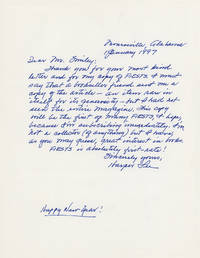 Monroeville, Alabama
January 1997
Dear Mr. Smiley:
Thank you for your most kind
letter and for my copy of FIRSTS. I must
say that a bookseller friend sent me a
copy of the article — an item rare in
itself for its generosity — but I had not
seen the entire magazine. This will
be the first of many FIRSTS, I hope,
because I'm subscribing immediately. I'm
not a collector (of anything) but I have,
as you may guess, great interest in books.
FIRSTS is absolutely first-rate!
Sincerely yours,
Harper Lee
Happy New Year!